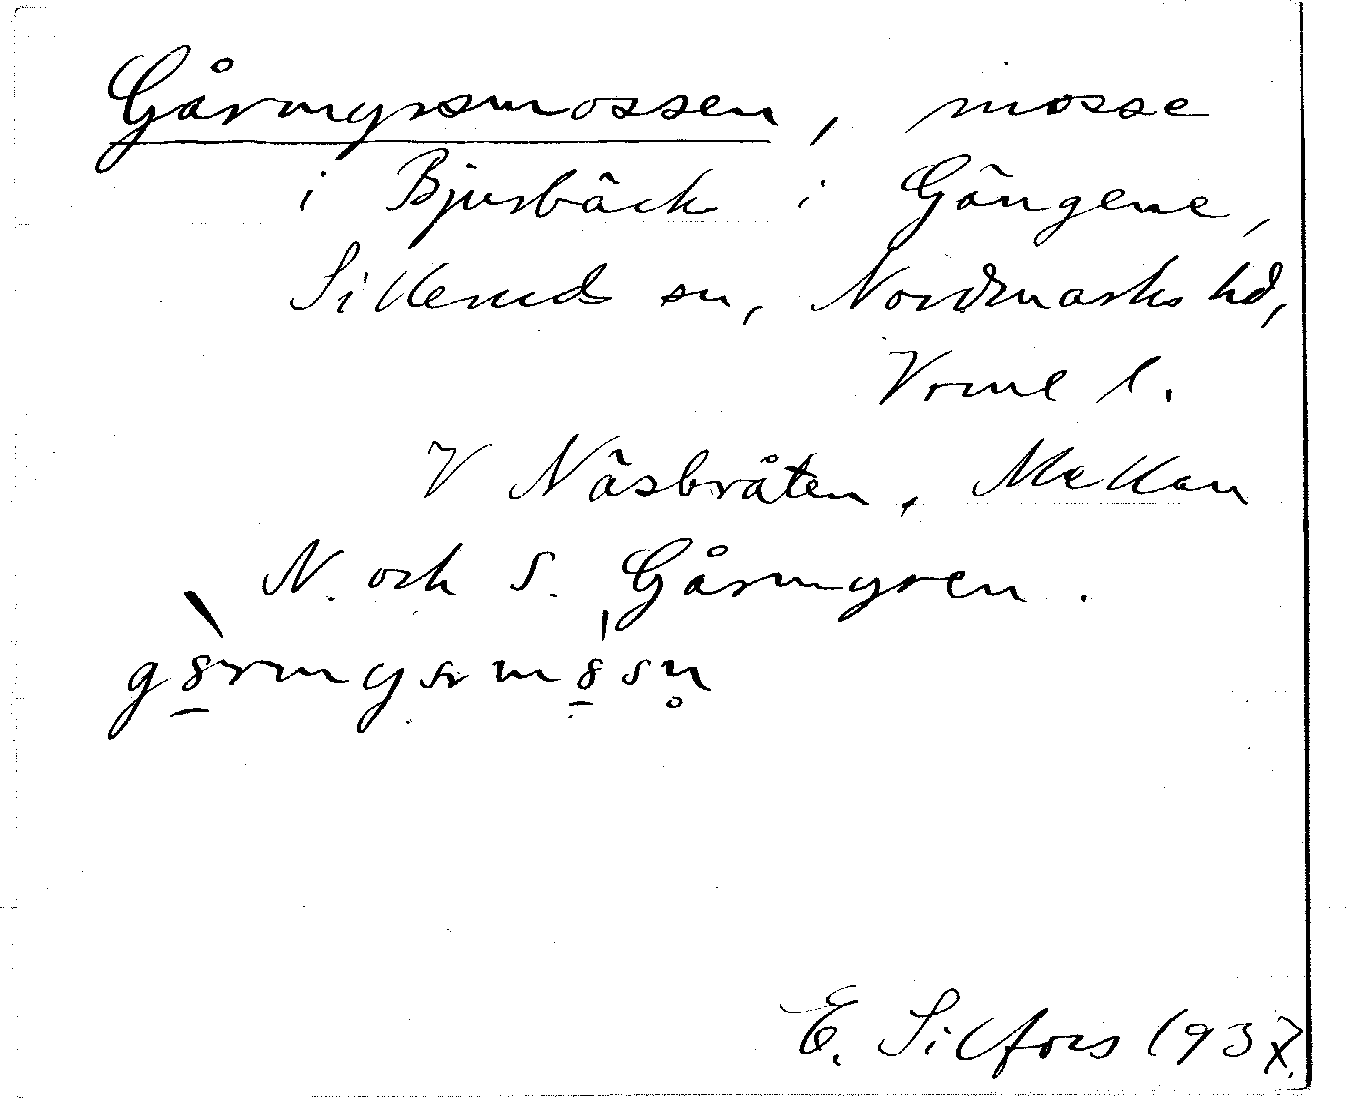 Gårmyrsmossen, mosse
i Bjurbäck i Gängene,
Sillerud sn, Nordmarks hd,
Vrml l.
V Näsbråten, Mellan
N. och S. Gårmyren.
E. Silfors 1937.